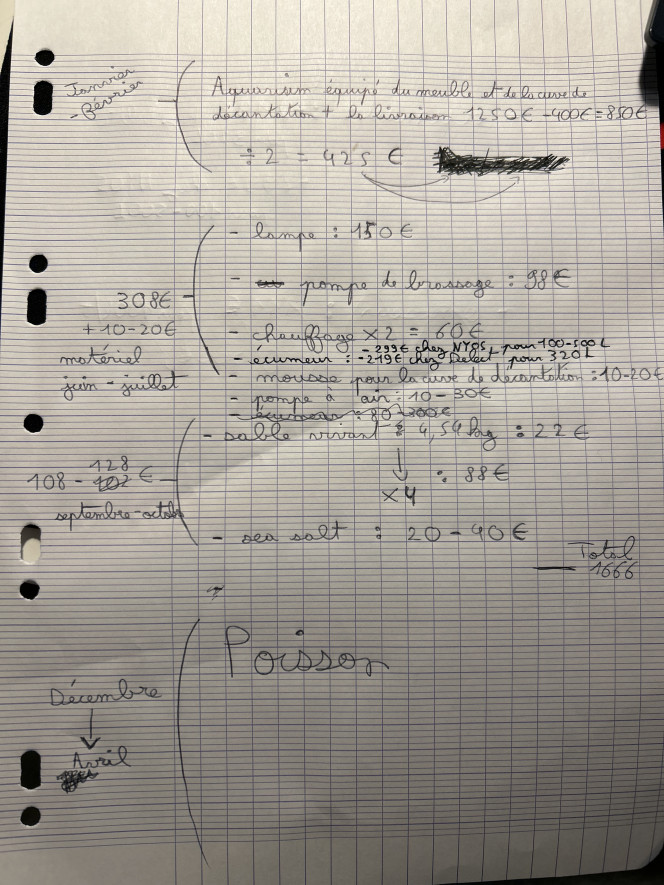 Janvier
- Février
Aquarium équipé du meuble et de la cuve de
décantation + la livraison 1250€ -400€ = 850€
÷ 2 = 425 €
- lampe : 150€
- pompe de brassage : 98€
308€
+ 10-20€
matériel
juin - juillet
- chauffage x 2 = 60€
- 299€ chez NYOS pour 100-500L
- écumeur : - 219€ chez Delect pour 320L
- mousse pour la cuve de décantation : 10-20€
- pompe à air : 10 - 30€
- écumeur : 80-300€
- sable vivant : 4,54 kg : 22€
↓ : 88€
x4
108 - 128 €
septembre-octobre
- sea salt : 20 - 40€
Total
1666
Poisson
Décembre
↓
Avril